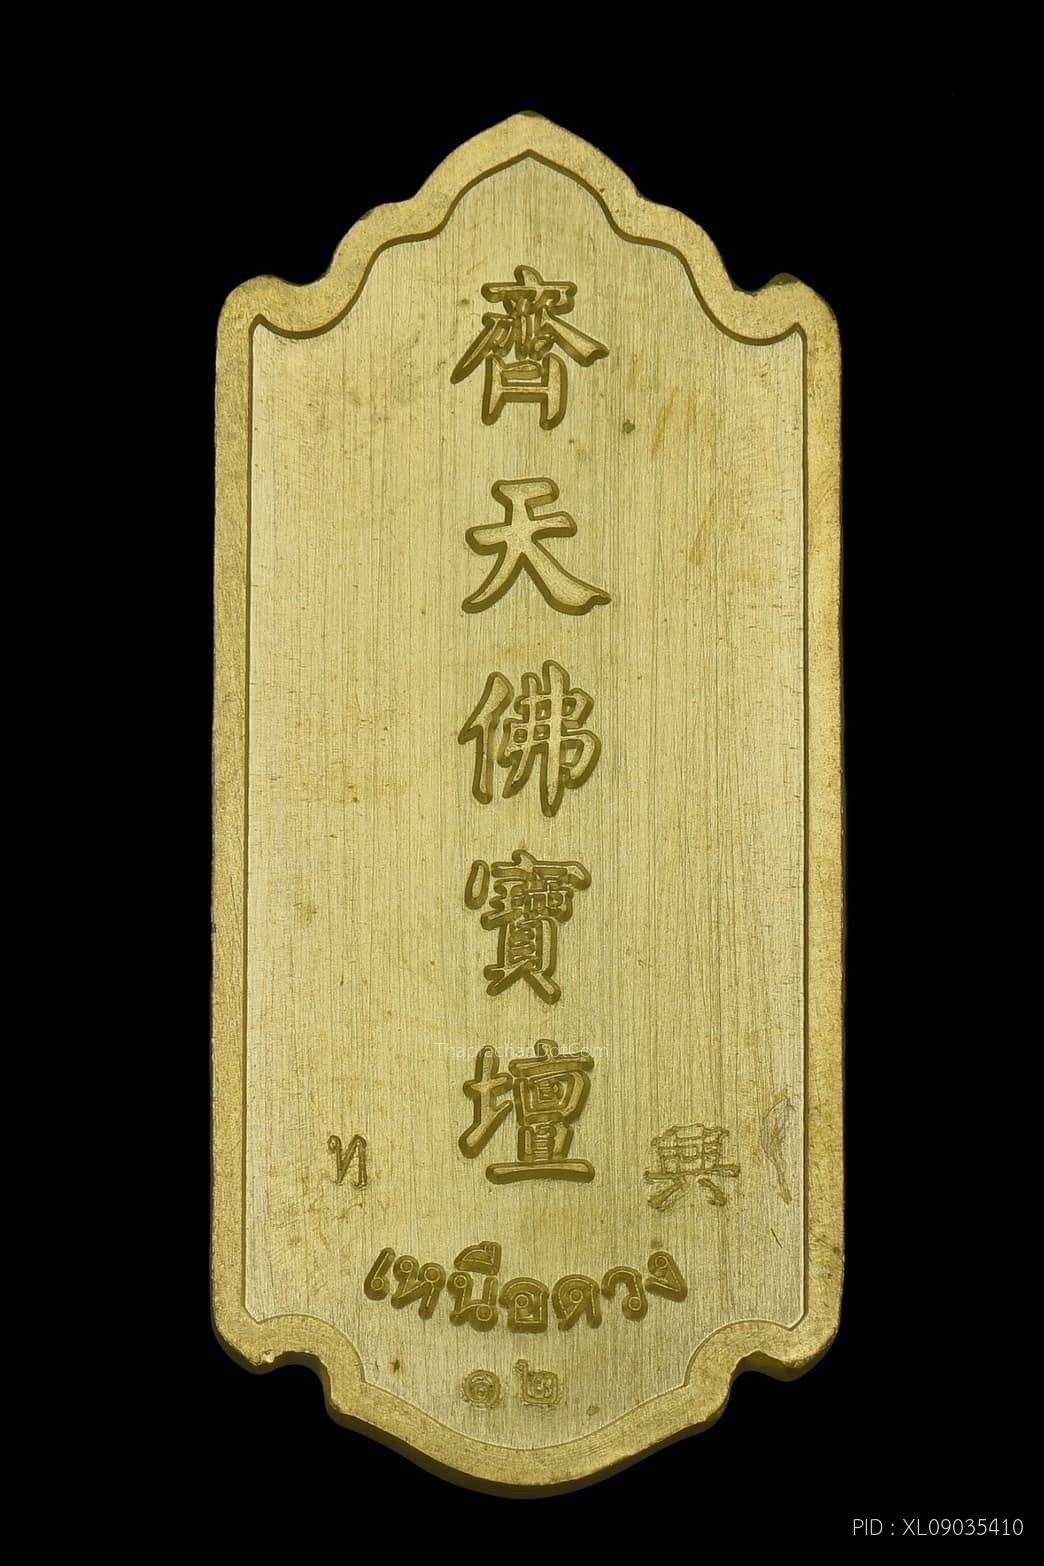 齊
天
佛
寶
壇
ท
興
เหนือดวง
๑๒
PID : XL09035410